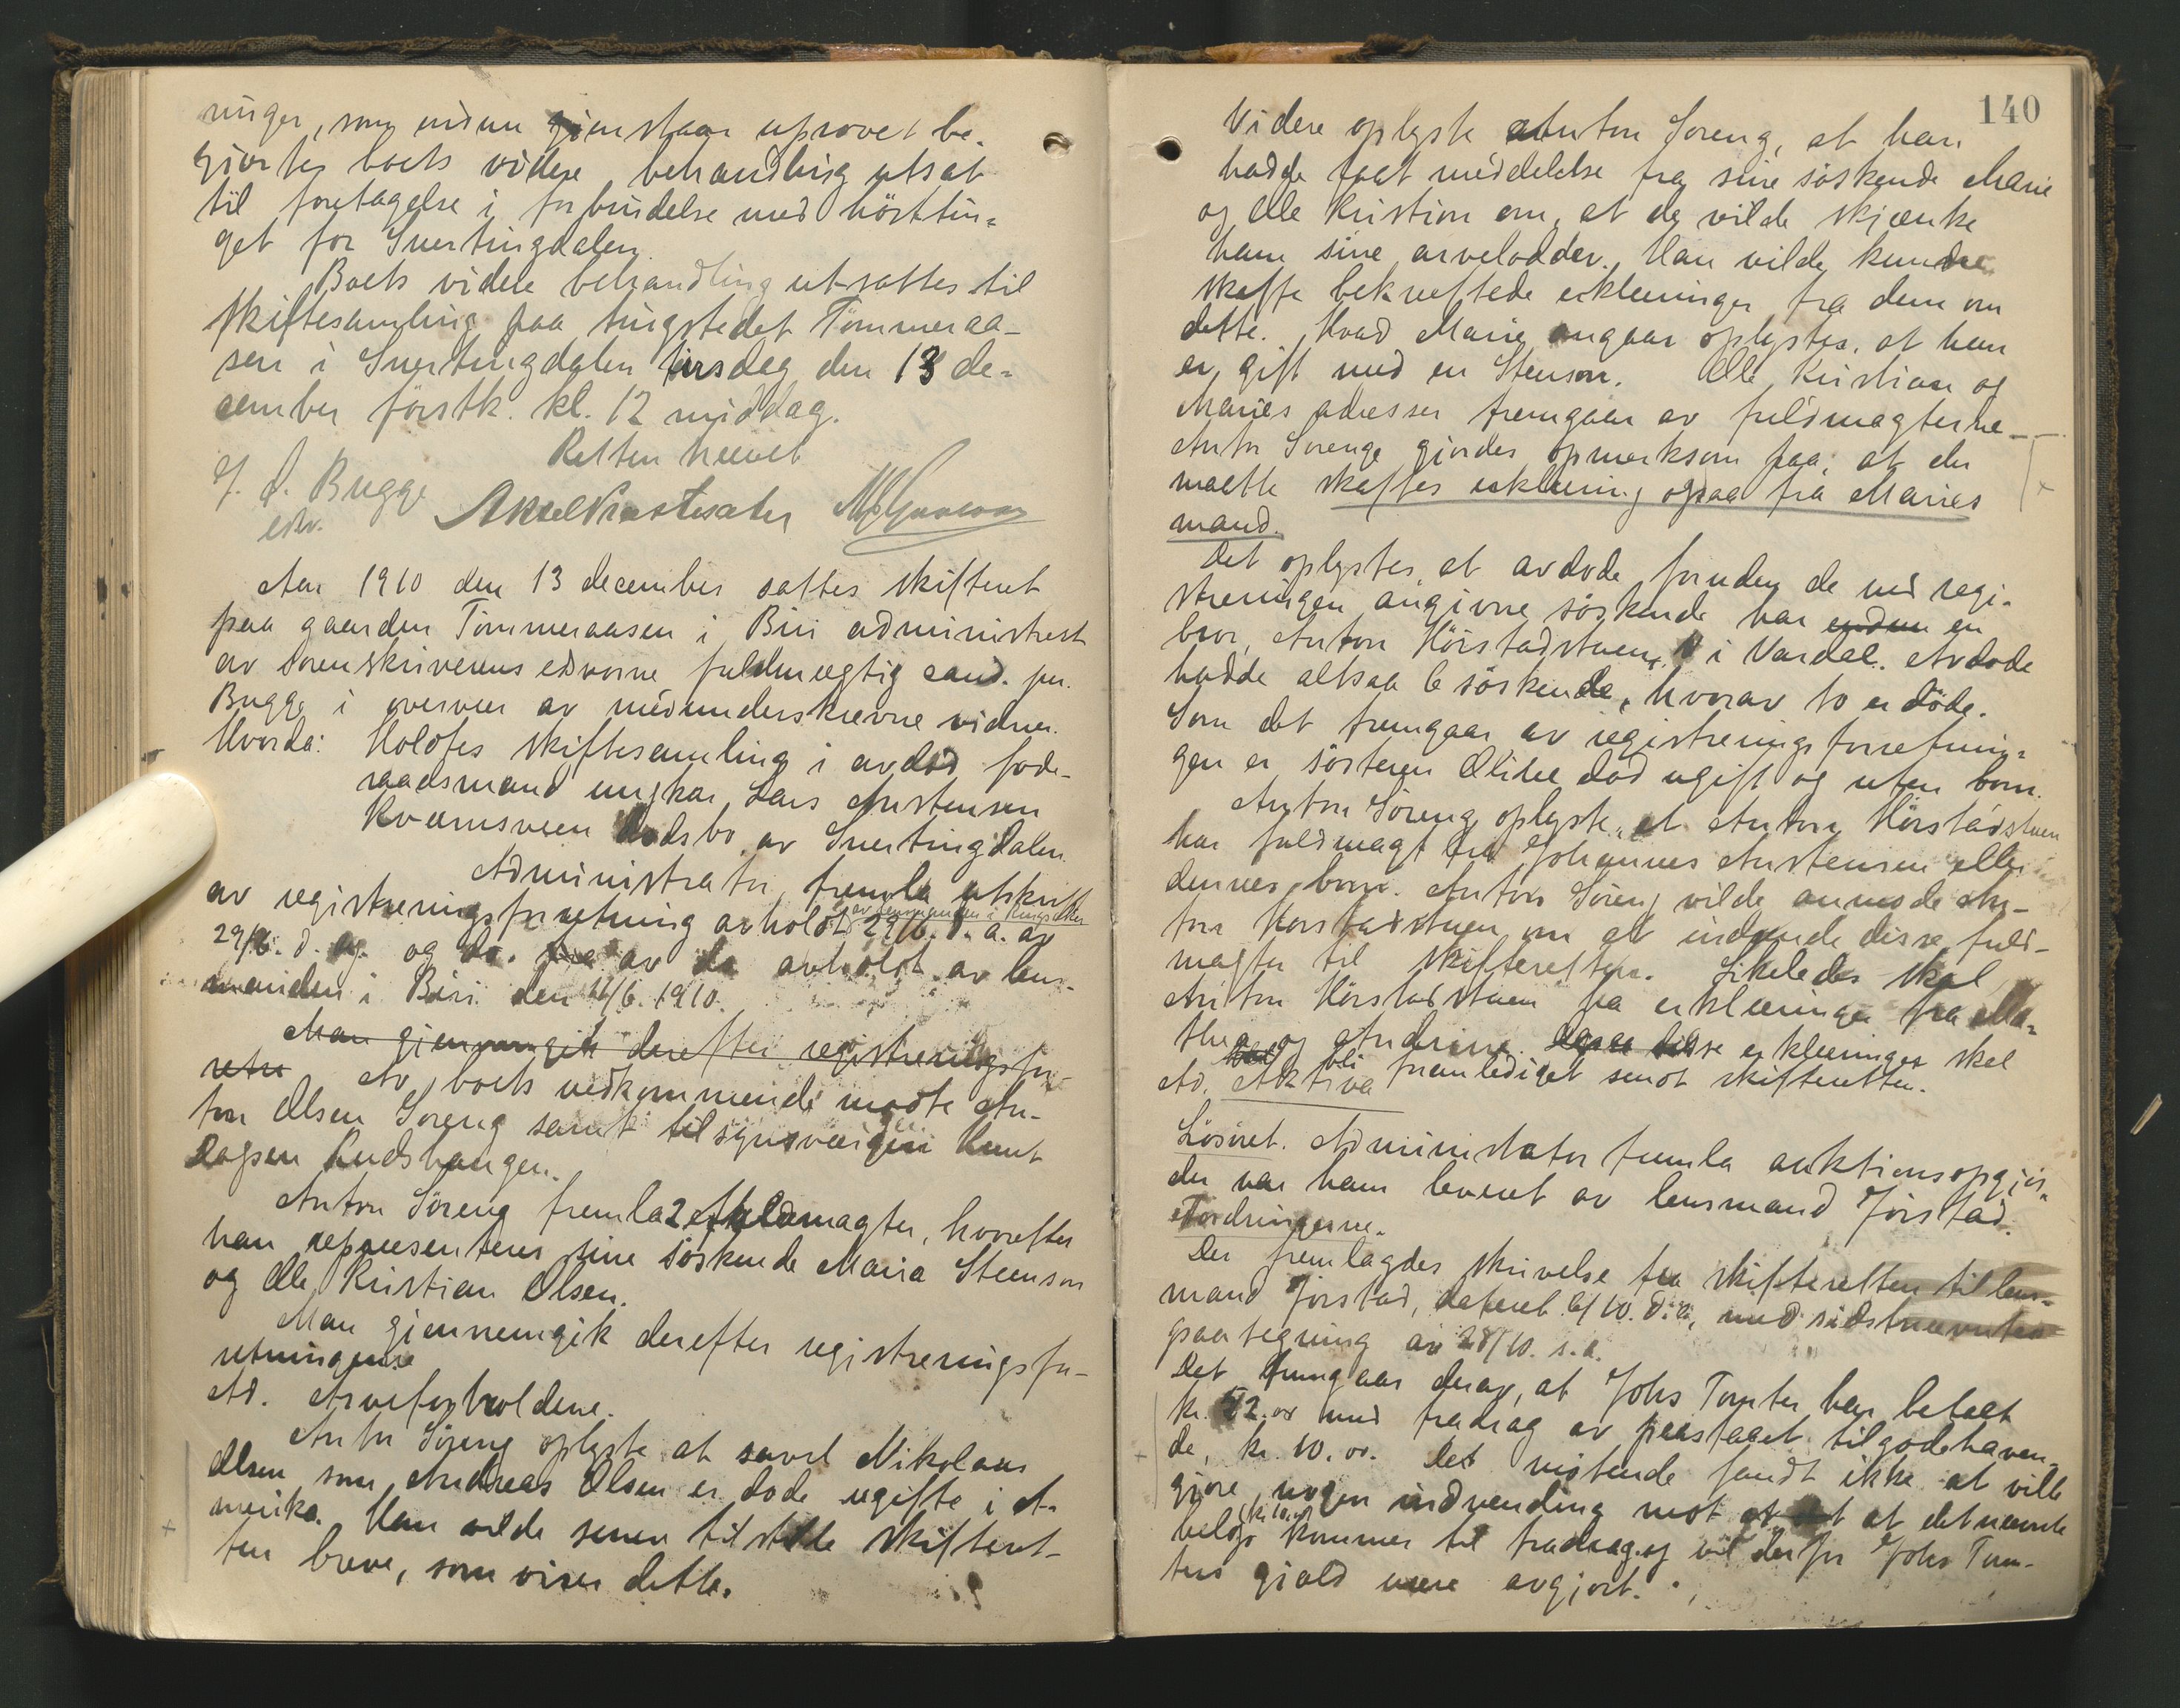 ninger, som endnu gjenstaar uprøvet be-
gjærtes boets videre behandling utsat
til foretagelse i forbindelse med hösttin-
get for Snertingdalen.
Boets videre behandling utsattes til
skiftesamling paa tingstedet Tömmeraa-
sen i Snertingdalen tirsdag den 13 de-
cember förstk. kl. 12 middag.
Retten hævet
J. S. Bugge
edsv.
Aar 1910 den 13 december sattes skifteret
paa gaarden Tömmeraasen i Biri administrert
av sorenskriverens edsvorne fuldmægtig cand. jur.
Bugge i overvær av medunderskrevne vidner.
Hvorda: Holdtes skiftesamling i avdöd föde-
raadsmand ungkar Lars Austensen
Kværnsveen dødsbo av Snertingdalen.
Administrator fremla utskrift
av registreringsforretning avholdt 29/6. d. a. av
av lensmanden i Ringsaker
29/6. d. a. og do. av do avholdt av lens-
manden i Biri den 11/6. 1910.
Man gjennemgik derefter registreringsfor-
retn Av boets vedkommende mødte An-
ton Olsen Soreng samt tilsynsværgen Knut
Lagsen Rudshaugen.
Anton Söreng fremla 2 fuldmagter, hvorefter
han repræsenterer sine söskende Maria Steenson
og Ole Kristian Olsen.
Man gjennemgik derefter registreringsfor-
retningene
Ad. Arveforholdene.
Anton Söreng oplyste at savel Nikolaus
Olsen som Andreas Olsen er döde ugifte i A-
merika. Han vilde senere tilstille skifteret-
ten breve, som viser dette.
140
Videre oplyste Anton Soreng, at han
hadde faat meddelelse fra sine söskende Marie
og Ole Kristian om, at de vilde skjænke
ham sine arvelodder. Han vilde kunne
skaffe bekræftede erklæringer fra dem om
dette. Hvad Marie angaar oplystes, at hun
er gift med en Stenson. Ole Kristian og
Maries adresser fremgaar av fuldmagterne.
Anton Sorenge gjordes opmerksom paa, at der
maatte skaffes erklæring ogsaa fra Maries
mand.
Det oplystes, at avdøde foruden de ved regi-
streringen angivne söskende har endnu en
bror, Anton Hörstadstuen i Vardal. Avdøde
hadde altsaa 6 söskende, hvorav to er döde.
Som det fremgaar av registreringsforretnin-
gen er sösteren Oline död ugift og uten barn.
Anton Söreng oplyste, at Anton Hörstadstuen
har fuldmagt fra Johannes Austensen eller
dennes barn. Anton Söreng vilde anmode An-
ton Hörstadstuen om at indsende disse fuld-
magter til skifteretten. Likeledes skal
Anton Hörstadstuen fra erklæringer fra Ma-
thea og Andrine. Disse erklæringer skal
bli fremlediget senest skifteretten.
Ad. Aktiva
Lösöret. Administrator fremla auktionsopgjör,
der var ham leveret av lensmand Jörstad.
Fordringerne.
Der fremlagdes skrivelse fra skifteretten til lens-
mand Jörstad, dateret 6/10. d. a., med sidstnævntes
paategning av 28/10. s. a.
Det fremgaar derav, at Johs Tomter har betalt
kr. 52.00 med fradrag av paastaaet tilgodehaven-
de, kr. 10.00. Det mötende fandt ikke at ville
gjøre nogen indvending mot at det nævnte
belöp (kr 10.00) kommer til fradrag og vil derfor Johs Tom-
ters gjæld være avgjort.